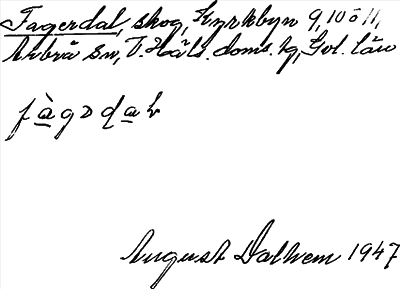 Fagerdal, skog, Kyrkbyn 9, 10 o 11,
Arbrå sn, V. Häls. doms. tg, Gvl. län
fàgɔdaɫ
August Dalhem 1947